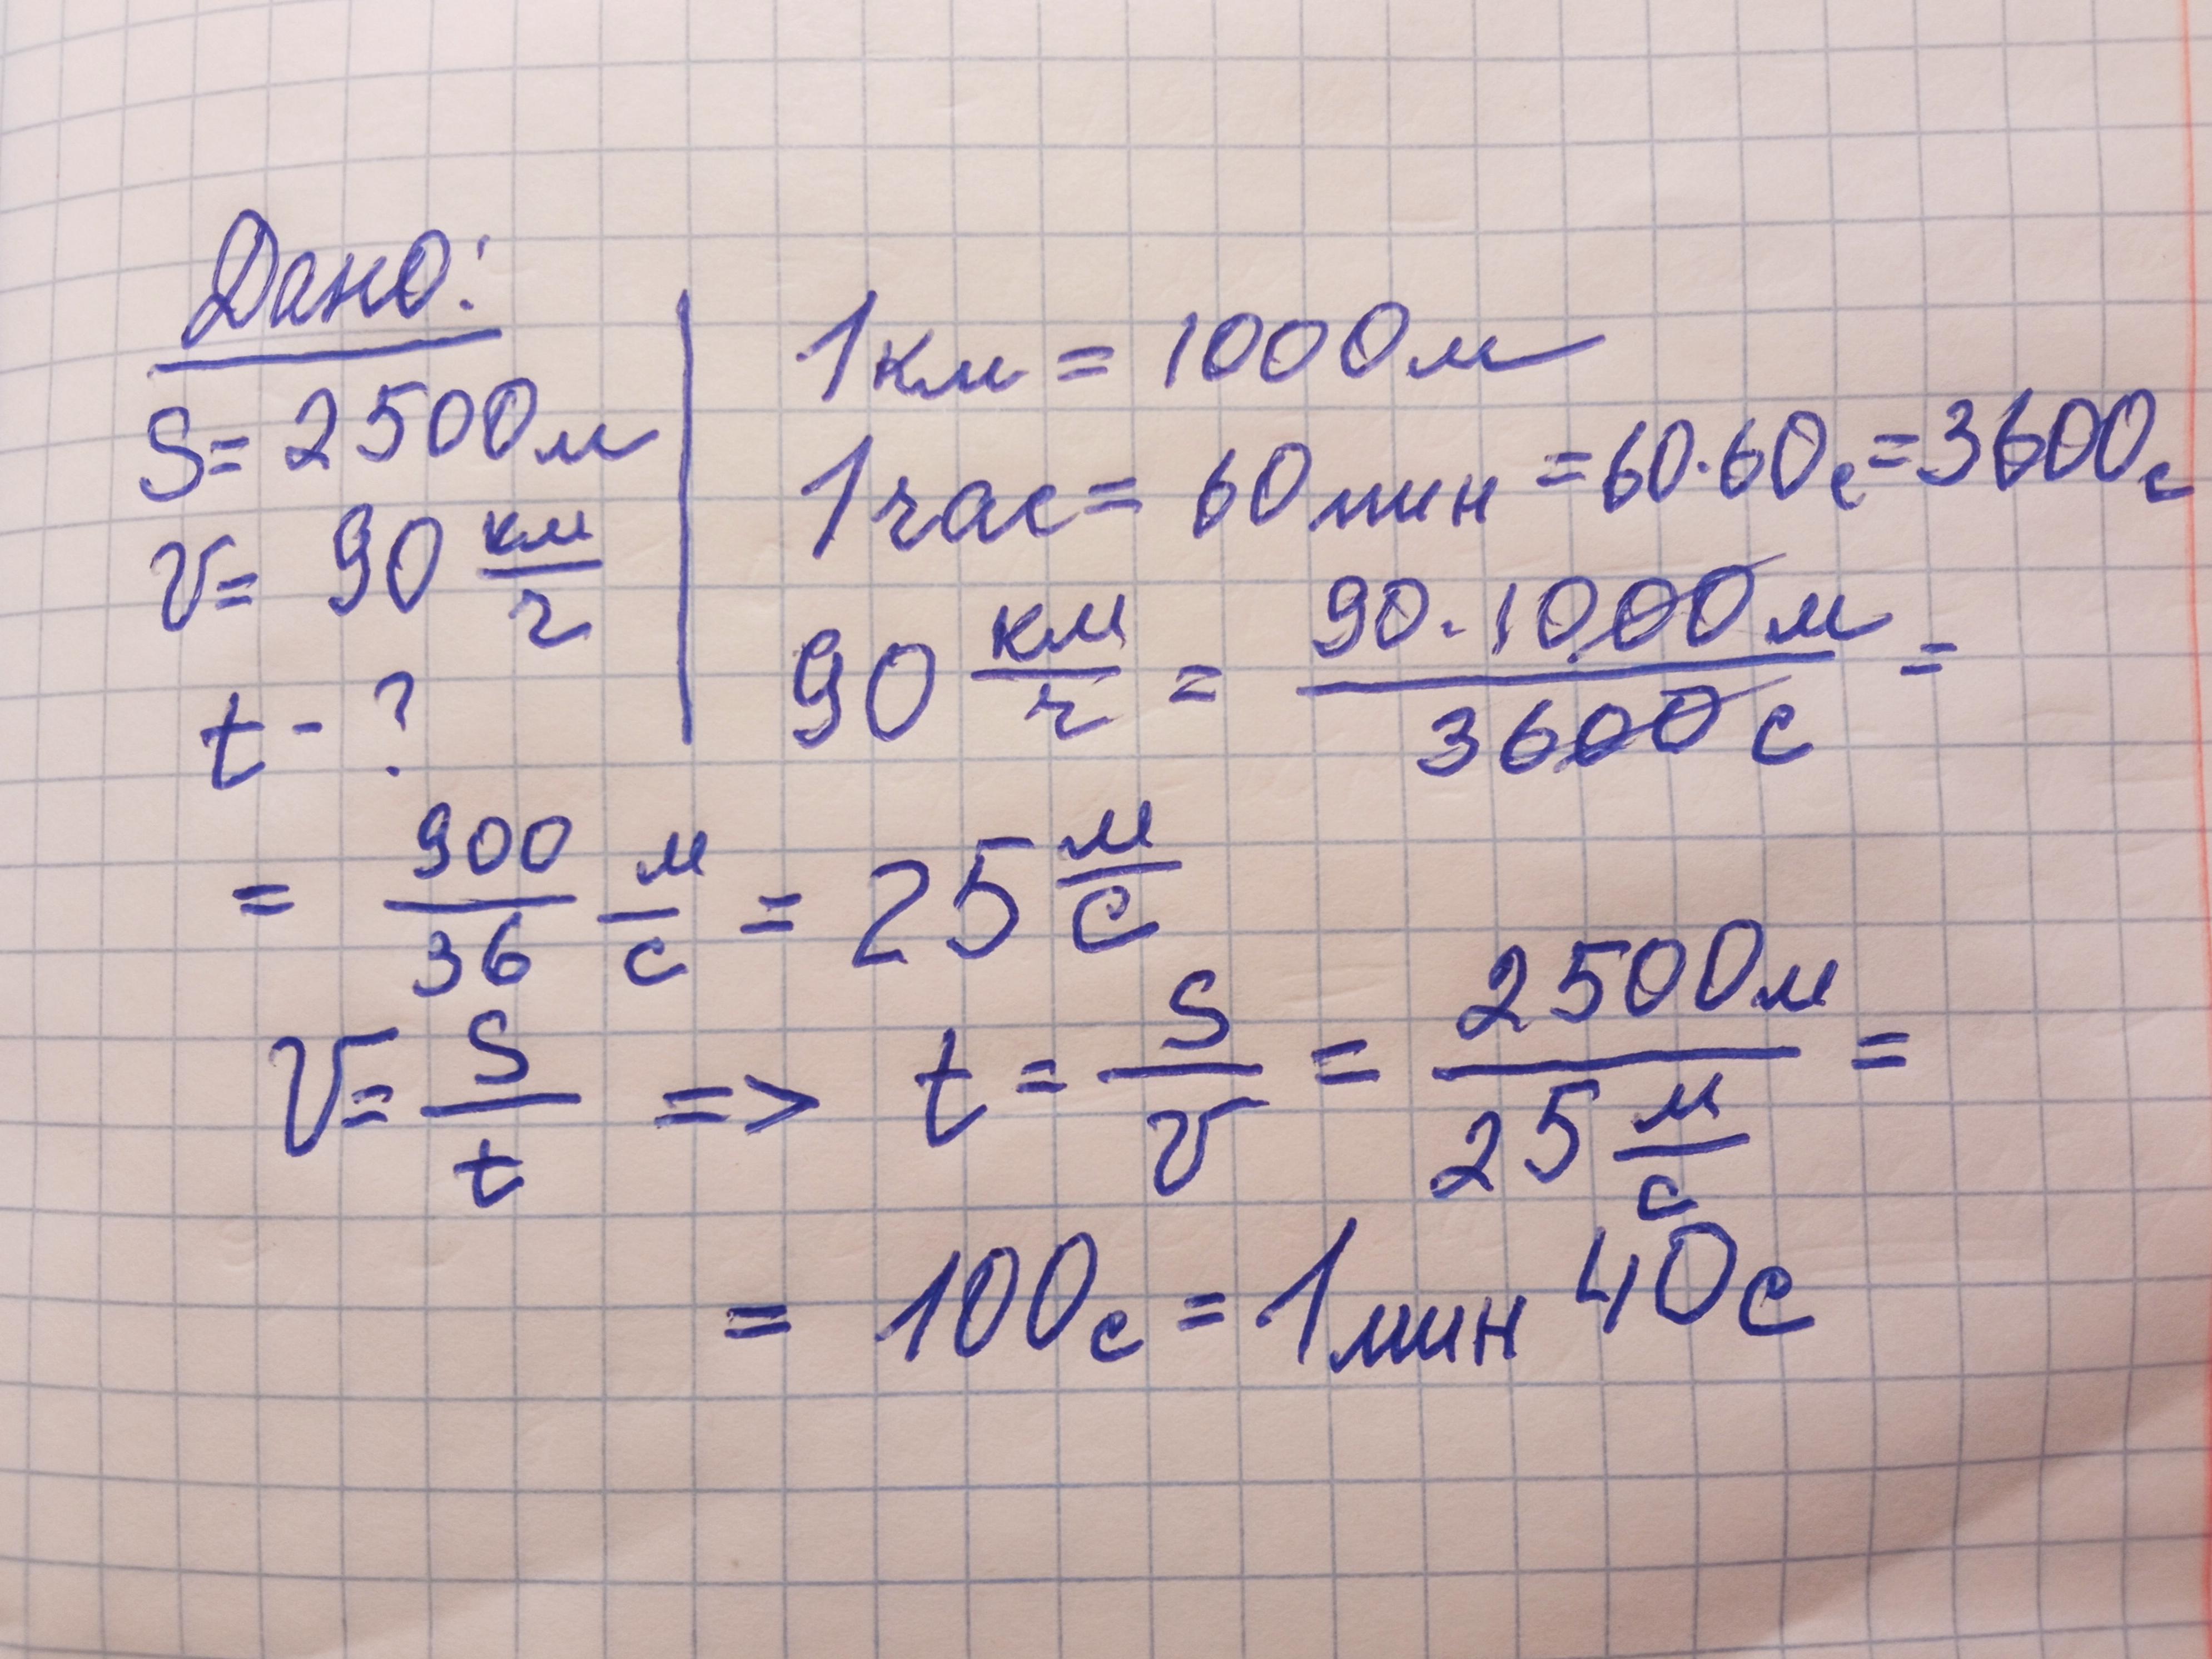 Дано:
S = 2500 м
v = 90 км/ч
t - ?
1 км = 1000 м
1 час = 60 мин = 60·60 с = 3600 с
90 км/ч = 90·1000 м / 3600 с =
= 900/36 м/с = 25 м/с
v = S/t => t = S/v = 2500 м / 25 м/с =
= 100 с = 1 мин 40 с